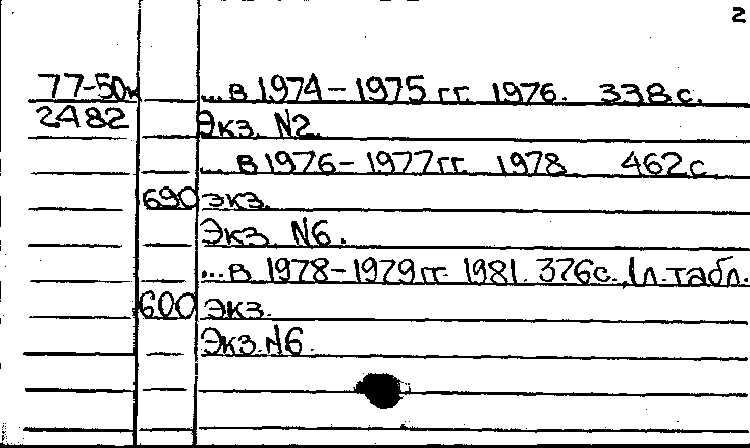 2
77-50к ... в 1974-1975 гг. 1976. 338 с.
2482 Экз. N2.
... в 1976-1977 гг. 1978 462 с.
690 экз.
Экз. N6.
... в 1978-1979 гг. 1981. 376 с., 1 л. табл.
600 Экз.
Экз. N6.